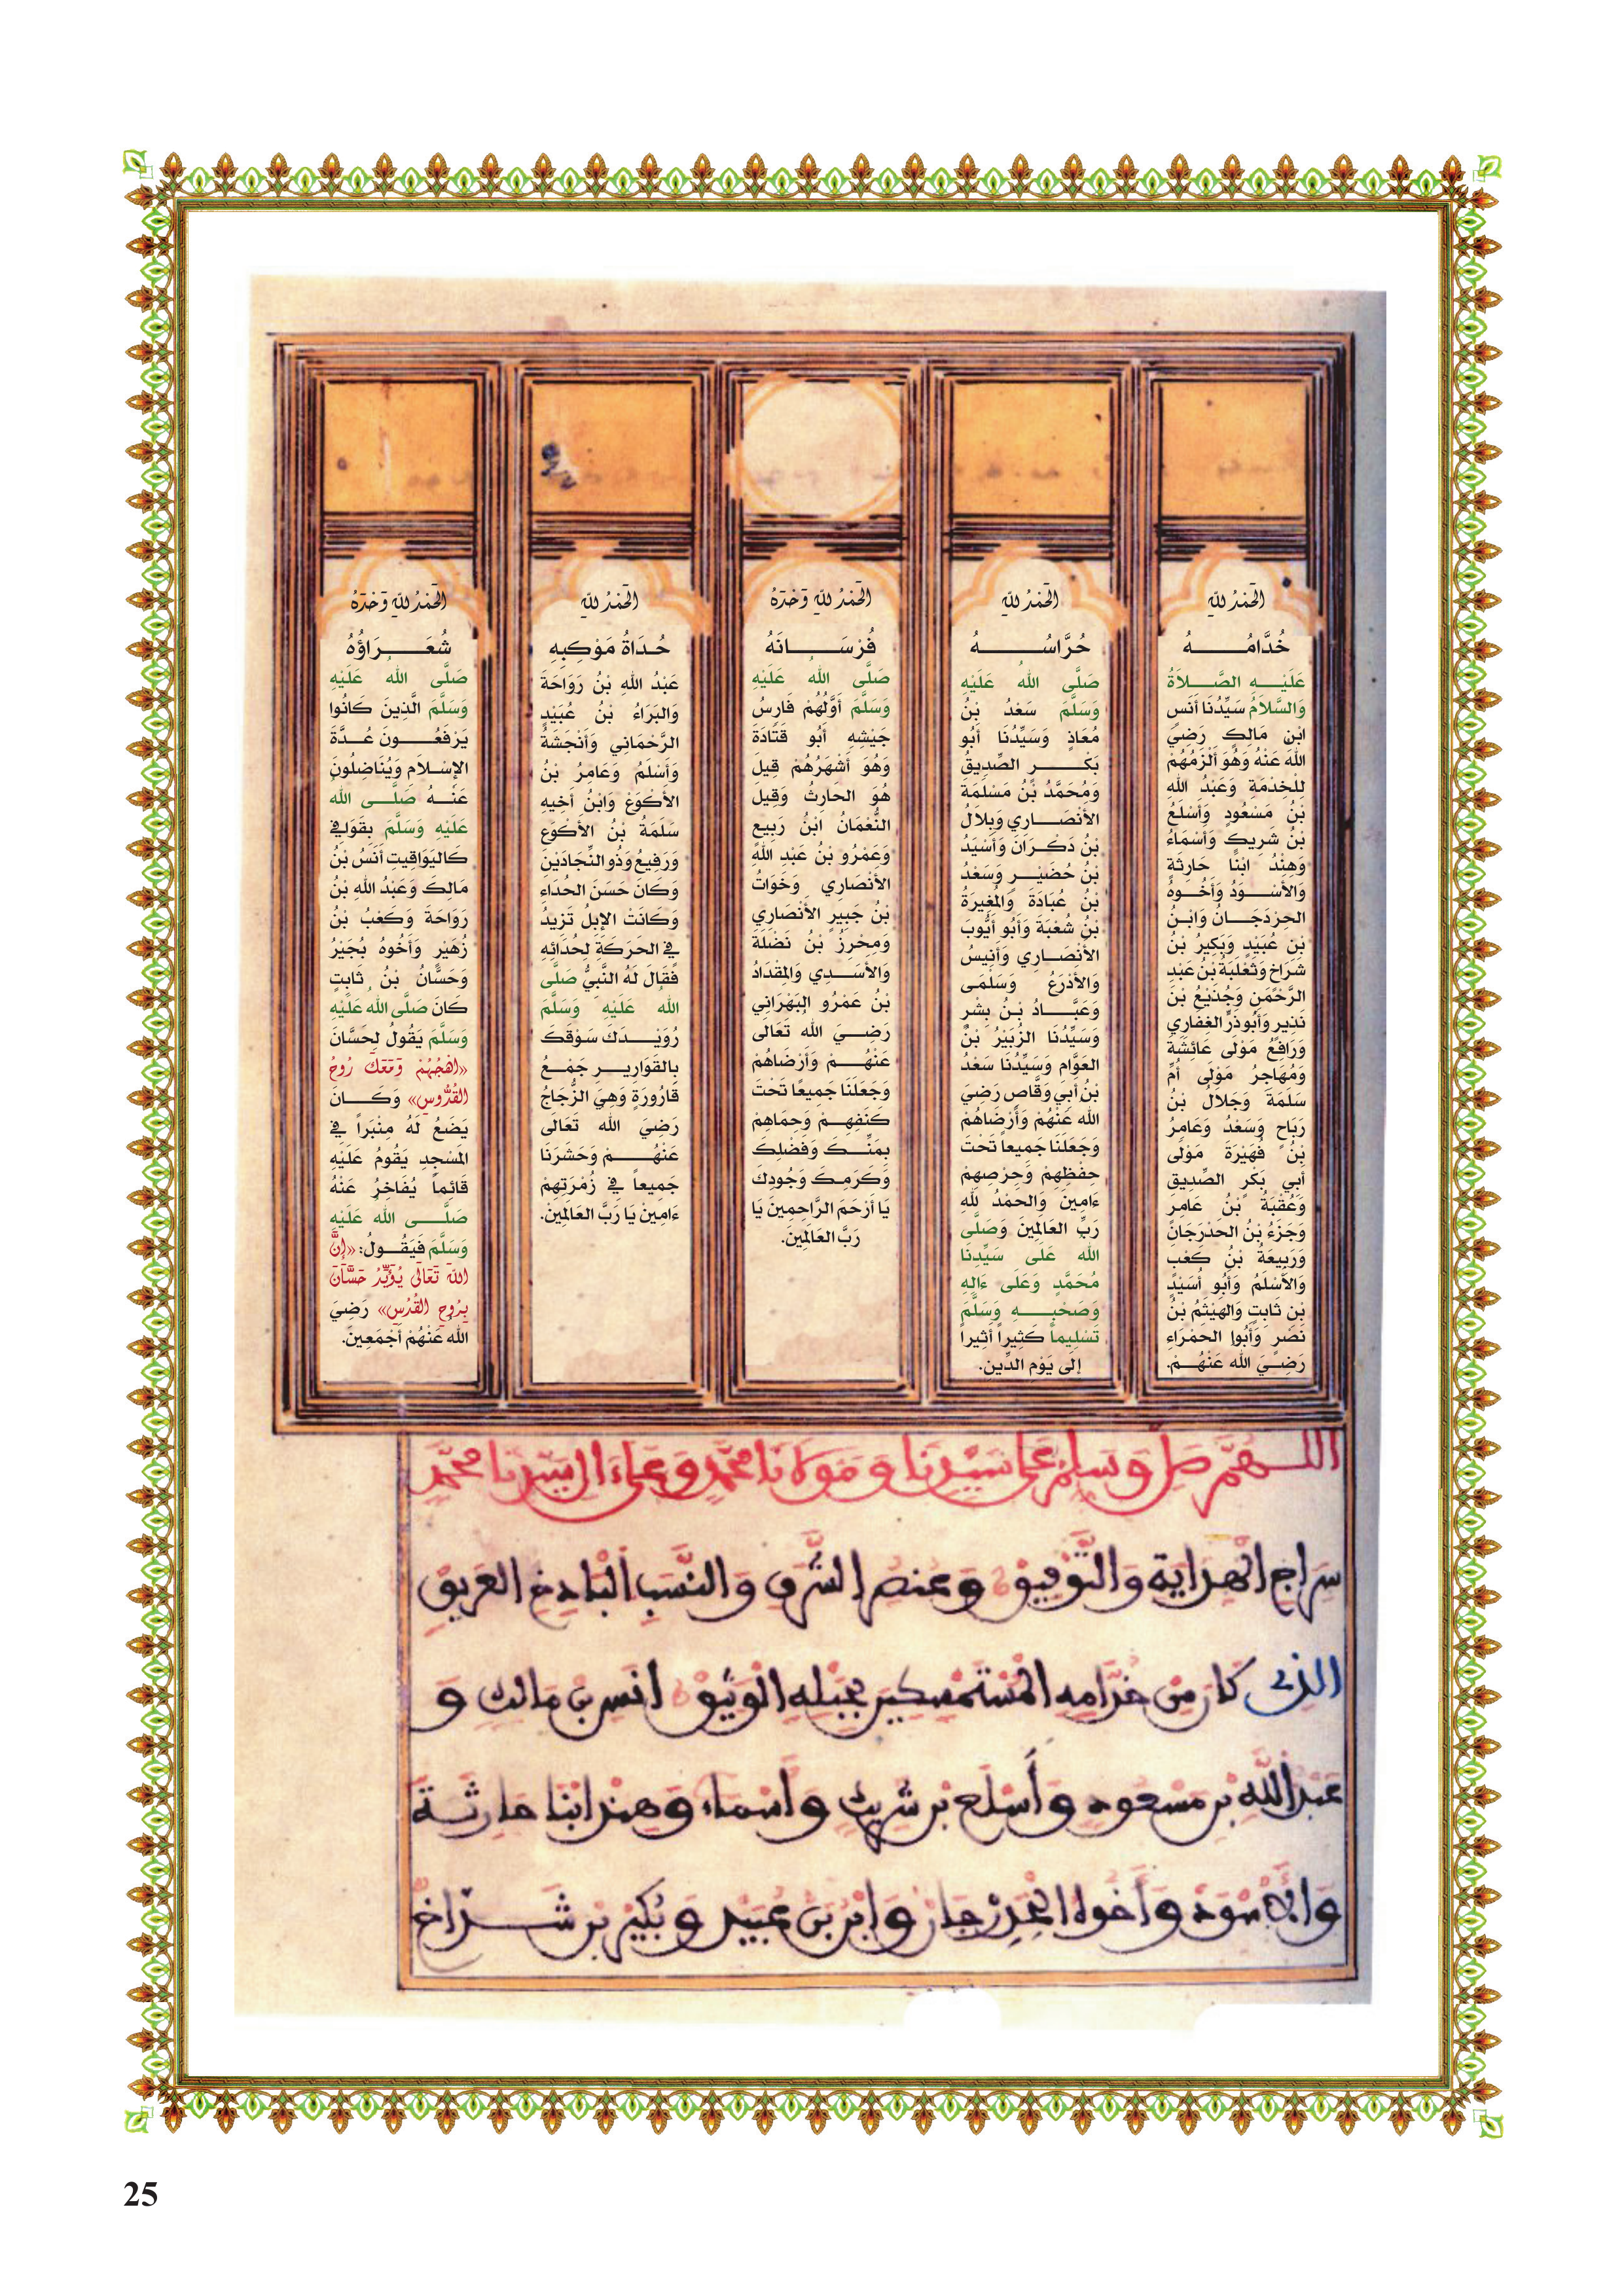 الحَمْدُ للهِ
خُدَّامُـــــهُ
عَلَيْـهِ الصَّـلَاةُ
وَالسَّلَامُ سَيِّدُنَا أَنَس
ابْن مَالِكٍ رَضِيَ
اللهُ عَنْهُ وَهُوَ أَلْزَمُهُمْ
لِلْخِدْمَةِ وَعَبْدُ اللهِ
بْنُ مَسْعُودٍ وَأَسْلَعُ
بْنُ شَرِيكٍ وَأَسْمَاءُ
وَهِنْدُ ابْنَا حَارِثَةٍ
وَالأَسْـوَدُ وَأَخُـوهُ
الحِزدَجَـانُ وَابْـنُ
بْن عُبَيْدٍ وَبُكِيرُ بْنُ
شَرَاخِ وَثَعْلَبَةُ بْنُ عَبْدِ
الرَّحْمَنِ وَجُذَيْعُ بْنَ
نَذِيرٍ وَأَبُو ذَرٍّ الغِفَارِي
وَرَافِعُ مَوْلَى عَائِشَةَ
وَمُهَاجِرُ مَوْلَى أُمِّ
سَلَمَةَ وَجَلَالُ بْنُ
رَبَاحٍ وَسَعْدُ وَعَامِرُ
بْنُ فُهَيْرَةَ مَوْلَى
أَبِي بَكْرٍ الصِّدِيقِ
وَعُقْبَةُ بْنُ عَامِرَ
وَجَزَءُ بْنُ الحَدْرَجَانْ
وَرَبِيعَةُ بْنُ كَعْبٍ
وَالأَسْلَمُ وَأَبُو أُسَيْدٍ
بْنِ ثَابِتٍ وَالهَيْثَمُ بْنُ
نَصْرٍ وَأَبُوا الحَمْرَاءِ
رَضِـيَ الله عَنْهُـمْ.
الحَمْدُ للهِ
حُرَّاسُـــــهُ
صَلَّى اللهُ عَلَيْهِ
وَسَلَّمَ سَعْدُ بْنُ
مُعَاذٍ وَسَيِّدُنَا أَبُو
بَكْـــرٍ الصِّدِيقُ
وَمُحَمَّدُ بْنُ مَسْلَمَةَ
الأَنْصَـارِي وَبِلَالُ
بْنُ ذَكْـرَانَ وَأُسَيْدُ
بْنُ حُضَيْـرٍ وَسَعْدُ
بْنُ عُبَادَةَ وَالمُغِيرَةُ
بْنُ شُعْبَةَ وَأَبُو أَيُّوبَ
الأَنْصَـارِي وَأَنِيسُ
وَالأَدْرَعُ وَسَلْمَى
وَعَبَّـادُ بْـنُ بِشْرٍ
وَسَيِّدُنَا الزُّبَيْرُ بْنُ
العَوَّامِ وَسَيِّدُنَا سَعْدُ
بْنُ أَبِي وَقَّاصٍ رَضِيَ
الله عَنْهُمْ وَأَرْضَاهُمْ
وَجَعَلَنَا جَمِيعاً تَحْتَ
حِفْظِهِمْ وَحِرْصِهِمْ
ءَامِينَ وَالحَمْدُ للهِ
رَبِّ العَالَمِينَ وَصَلَّى
اللهُ عَلَى سَيِّدِنَا
مُحَمَّدٍ وَعَلَى ءَالِهِ
وَصَحْبِـهِ وَسَلَّمَ
تَسْلِيماً كَثِيراً أَثِيراً
إِلَى يَوْمِ الدِّينِ.
الحَمْدُ للهِ وَحْدَهُ
فُرْسَـــانُهُ
صَلَّى اللهُ عَلَيْهِ
وَسَلَّمَ أَوَّلُهُمْ فَارِسُ
جَيْشِهِ أَبُو قَتَادَةَ
وَهُوَ أَشْهَرُهُمْ قِيلَ
هُوَ الحَارِثُ وَقِيلَ
النُّعْمَانُ ابْنُ رَبِيعٍ
وَعَمْرُو بْنُ عَبْدِ اللهِ
الأَنْصَارِي وَخَوَاتُ
بْنُ جَبِيرٍ الأَنْصَارِي
وَمِحْرِزُ بْنُ نَضْلَةَ
وَالأَسَـدِي وَالمِقْدَادُ
بْنُ عَمْرُو البَهْرَانِي
رَضِـيَ اللهُ تَعَالَى
عَنْهُـمْ وَأَرْضَاهُمْ
وَجَعَلَنَا جَمِيعًا تَحْتَ
كَنَفِهِـمْ وَحِمَاهُمْ
بِمَنِّـكَ وَفَضْلِكَ
وَكَرَمِكَ وَجُودِكَ
يَا أَرْحَمَ الرَّاحِمِينَ يَا
رَبَّ العَالَمِينَ.
الحَمْدُ للهِ
حُـدَاةُ مَوْكِبِهِ
عَبْدُ اللهِ بْنُ رَوَاحَةَ
وَالبَرَاءُ بْنُ عُبَيْدٍ
الرَّحْمَانِي وَأَنْجَشَةُ
وَأَسْلَمُ وَعَامِرُ بْنُ
الأَكْوَعْ وَابْنُ أَخِيهِ
سَلَمَةُ بْنُ الأَكْوَعِ
وَرَفِيعُ وَذُو النِّجَادَيْنِ
وَكَانَ حَسَنَ الحُدَاءِ
وَكَانَتْ الإِبِلُ تَزِيدُ
فِي الحَرَكَةِ لِحُدَائِهِ
فَقَالَ لَهُ النَّبِيُّ صَلَّى
اللهُ عَلَيْهِ وَسَلَّمَ
رُوَيْـدَكَ سَوْقَكَ
بِالقَوَارِيـرِ جَمْـعُ
قَارُورَةٍ وَهِيَ الزُّجَاجُ
رَضِيَ الله تَعَالَى
عَنْهُـــمْ وَحَشَرَنَا
جَمِيعاً فِي زُمْرَتِهِمْ
ءَامِينْ يَا رَبَّ العَالَمِينْ.
الحَمْدُ للهِ وَحْدَهُ
شُعَـــرَاؤُهُ
صَلَّى اللهُ عَلَيْهِ
وَسَلَّمَ الَّذِينَ كَانُوا
يَرْفَعُـــونَ عُـدَّةَ
الإِسْلَامِ وَيُنَاضِلُونَ
عَنْـهُ صَلَّـى الله
عَلَيْهِ وَسَلَّمَ بِقَوَافِي
كَاليَوَاقِيتِ أَنَسُ بْنُ
مَالِكَ وَعَبْدُ اللهِ بْنُ
رَوَاحَةَ وَكَعْبُ بْنُ
زُهَيْرٍ وَأَخُوهُ بُجَيْرُ
وَحَسَّانُ بْنُ ثَابِتٍ
كَانَ صَلَّى الله عَلَيْهِ
وَسَلَّمَ يَقُولُ لِحَسَّانَ
«اهْجُهُمْ وَمَعَكَ رُوحُ
القُدُّوسِ» وَكَـــانَ
يَضَعُ لَهُ مِنْبَراً فِي
المَسْجِدِ يَقُومُ عَلَيْهِ
قَائِماً يُفَاخِرُ عَنْهُ
صَلَّـى الله عَلَيْهِ
وَسَلَّمَ فَيَقُـولُ: «إِنَّ
اللهَ تَعَالَى يُؤَيِّدُ حَسَّانَ
بِرُوحِ القُدُسِ» رَضِيَ
الله عَنْهُمْ أَجْمَعِينَ.
اللهُمَّ صَلِّ وَسَلِّمْ عَلَى سَيِّدِنَا وَمَوْلَانَا مُحَمَّدٍ وَعَلَى ءَالِ سَيِّدِنَا مُحَمَّدٍ
سِرَاجِ الْهِدَايَةِ وَالتَّوْفِيقِ وَعُنْصُرِ الشَّرَفِ وَالنَّسَبِ الْبَاذِخِ الْعَرِيقِ
الذِي كَانَ مِنْ خُدَّامِهِ الْمُسْتَمْسِكِينَ بِحَبْلِهِ الْوَثِيقِ أَنَسِ بْنُ مَالِكٍ وَ
عَبْدُ اللهِ بْنِ مَسْعُودٍ وَأَسْلَعَ بْنِ شَرِيكٍ وَأَسْمَاءَ وَهِنْدِ ابْنَا حَارِثَةَ
وَالأَسْوَدِ وَأَخُوهُ الْحِزْرَجَانِ وَابْنُ بْنُ عُبَيْدٍ وَبُكَيْرُ بْنِ شَـرَاخَ
25